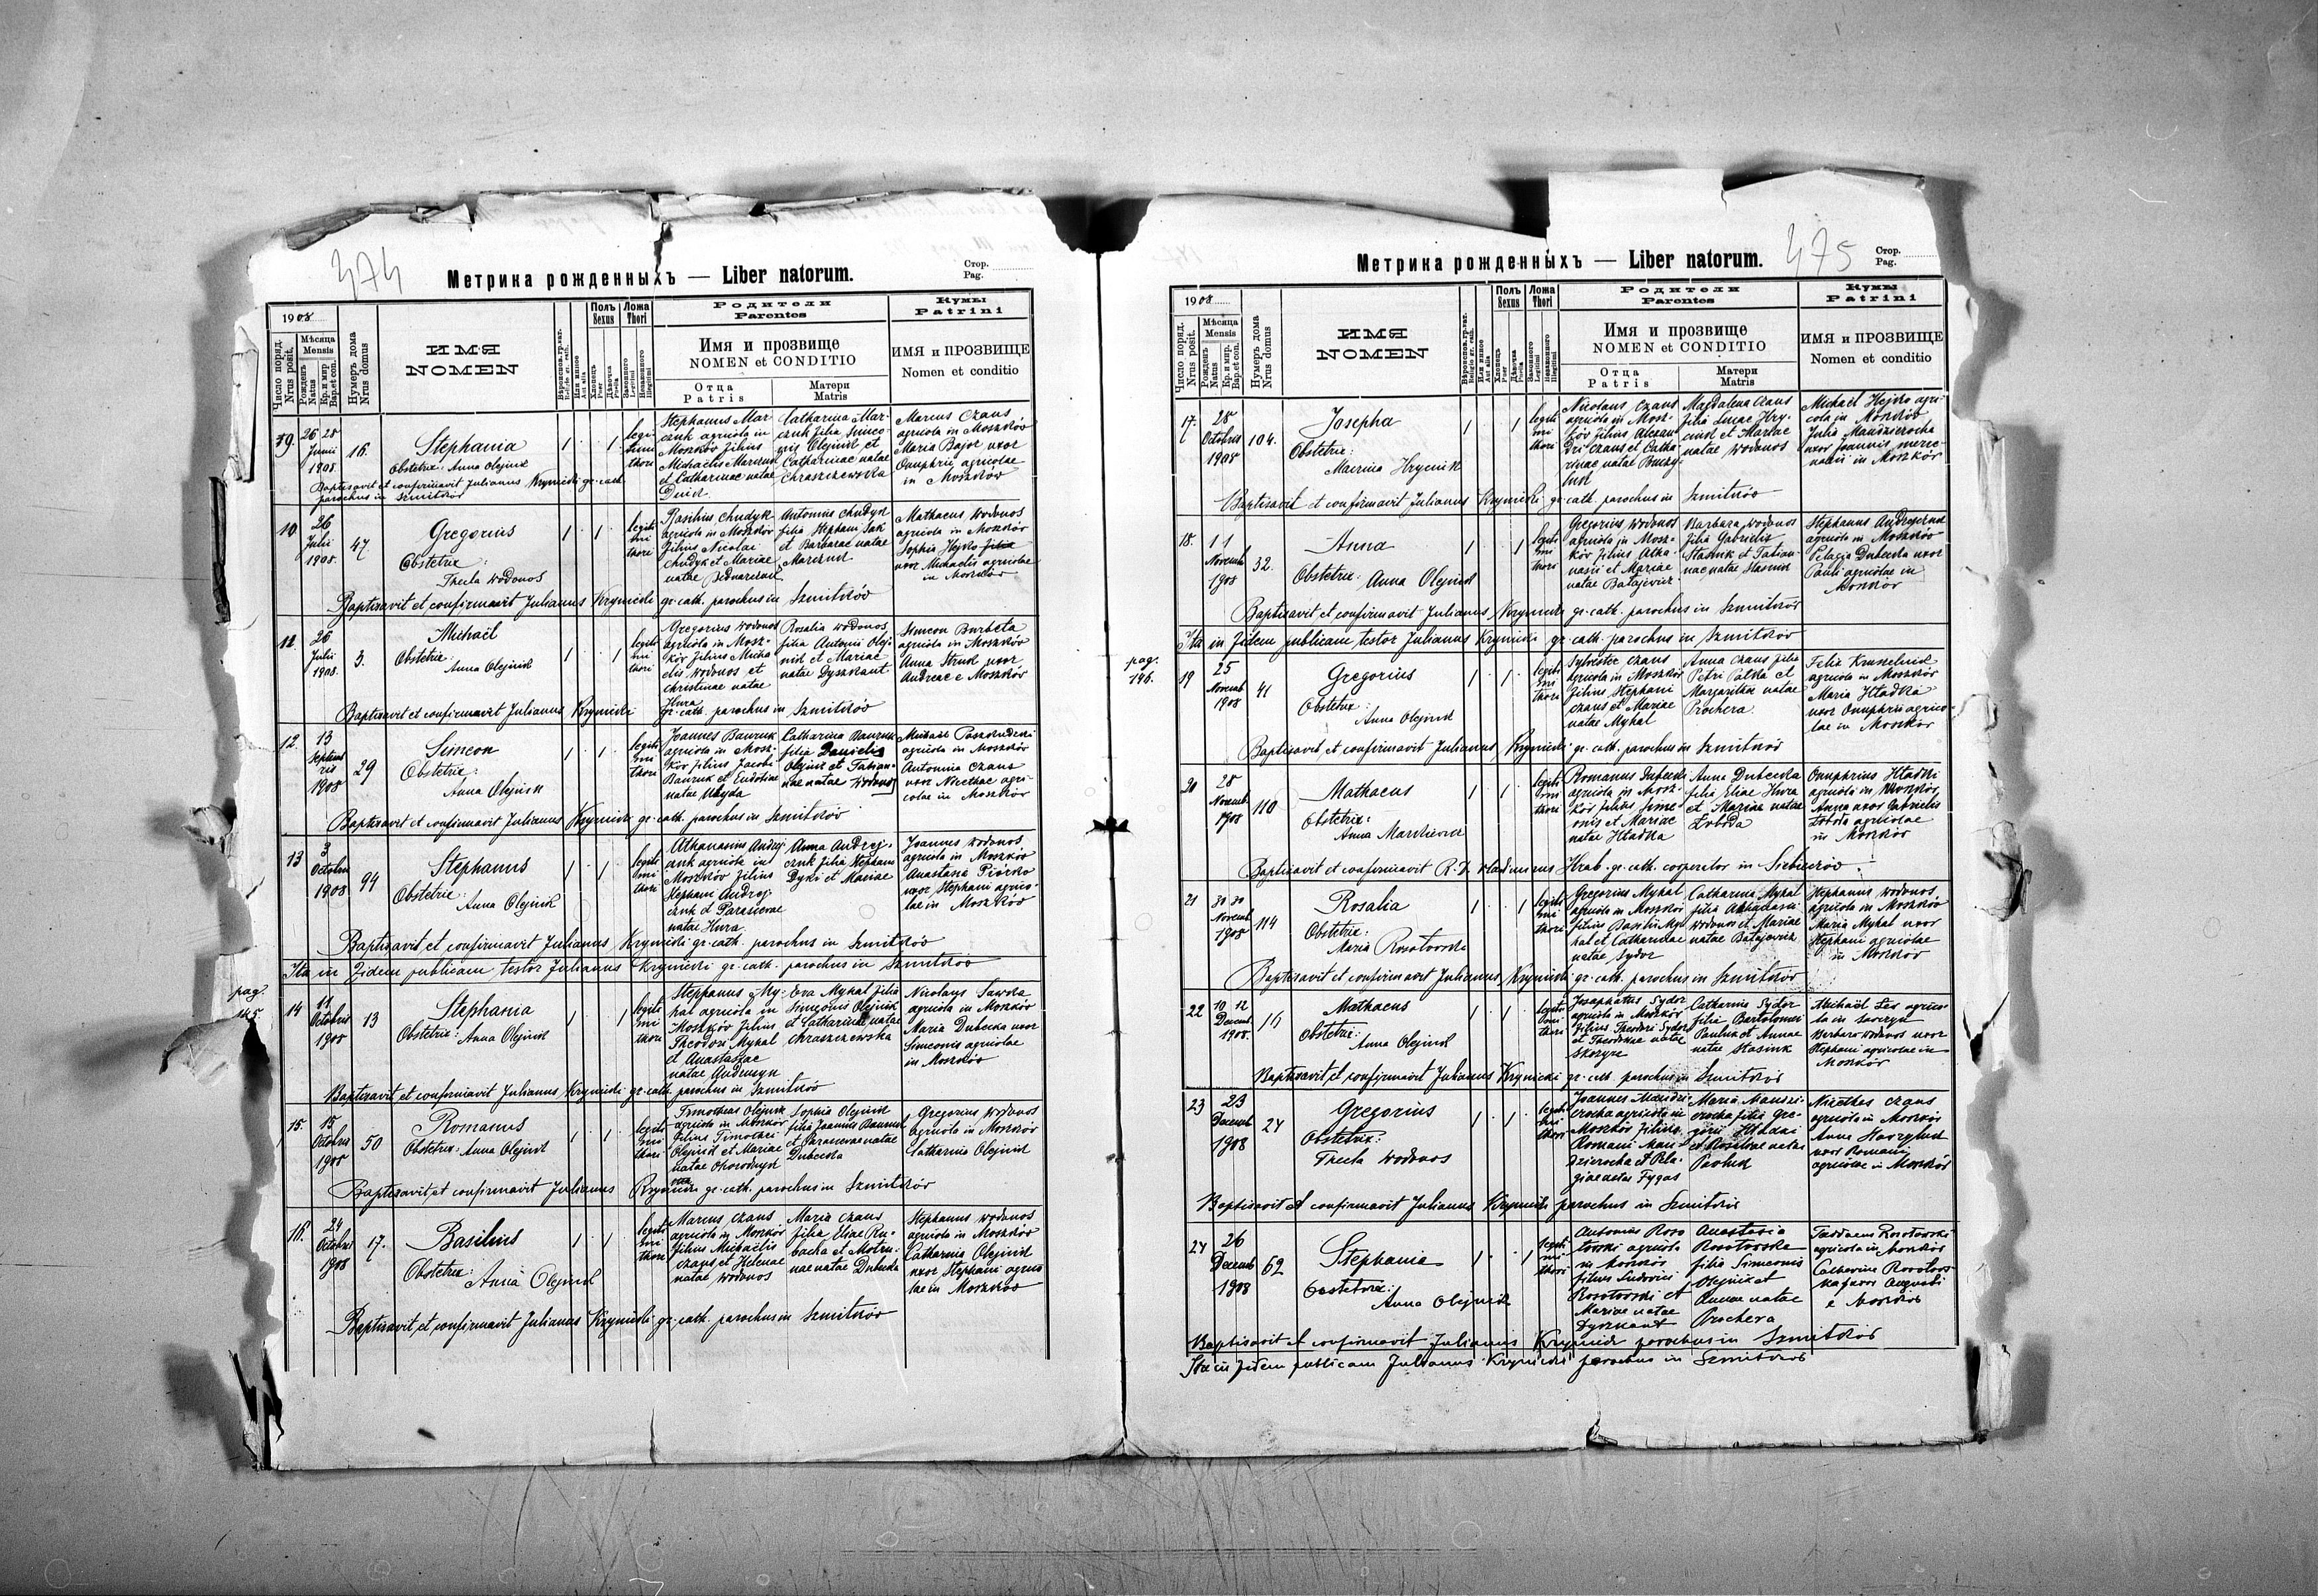 474
Метрика рожденныхъ — Liber natorum.
Стор.
Pag.
1908
Число поряд.
Nrus posit.
Мѣсяца
Mensis
Рожденъ
Natus
Кр. и мир
Bap. et con.
Нумеръ дома
Nrus domus
ИМЯ
NOMEN
Полъ
Sexus
Ложа
Thori
Хлопецъ
Puer
Дѣвочка
Puella
Законного
Legitimi
Незаконного
Illegitimi
Родители
Parentes
Имя и прозвище
NOMEN et CONDITIO
Отца
Patris
Матери
Matris
Кумы
Patrini
ИМЯ и ПРОЗВИЩЕ
Nomen et conditio
26 28
Junii
1908
16.
Stephania
Obstetrix: Anna Olejnik
legi-
timi
thori
Stephanus Mar-
czuk agricola in
Moszków filius
Michaelis Marczuk
et Catharinae natae
Catharina Mar-
czuk filia Simeo-
nis Olejnik et
Catharinae natae
Chraszczewska
Marcus Czaus
agricola in Moszków
Maria Bajor uxor
Onuphrii agricolae
in Moszków
Baptisavit et confirmavit Julianus Krynicki gr. cath.
parochus in Szmitków
10
26
Julii
1908.
47
Gregorius
Obstetrix:
Thecla Wodonos
legiti
mi
thori
Basilius Chudyk
agricola in Moszków
filius Nicolai
Chudyk et Mariae
natae Bednarczuk
Antonina Chudyk
filia Stephani Sak
et Barbarae natae
Marczuk
Mathaeus Wodonos
agricola in Moszków
Sophia Hejko filia
uxor Michaelis agricolae
in Moszków
Baptisavit et confirmavit Julianus Krynicki gr. cath. parochus in Szmitków
26
Julii
1908.
3.
Michaël
Obstetrix:
Anna Olejnik
legiti
mi
thori
Gregorius Wodonos
agricola in Mosz-
ków filius Micha
elis Wodonos et
Christinae natae
Hura
Rosalia Wodonos
filia Antonii Olej-
nik et Mariae
natae Dyszkant
Simeon Burbeta
agricola in Moszków
Anna Struk uxor
Andreae e Moszków
Baptisavit et confirmavit Julianus Krynicki gr. cath. parochus in Szmitków
12.
13
Septemb
ris
1908
29
Simeon
Obstetrix:
Anna Olejnik
legiti
mi
thori
Joannes Bauruk
agricola in Mosz-
ków filius Jacobi
Bauruk et Eudoxiae
natae
Catharina Bauruk
filia Danielis
Olejnik et Tatian-
nae natae Wodonos
Michaël
agricola in Moszków
Antonina Czaus
uxor Nicethae agri-
colae in Moszków
Baptisavit et confirmavit Julianus Krynicki gr. cath. parochus in Szmitków
13
3
Octobris
1908
94
Stephanus
Obstetrix:
Anna Olejnik
legiti
mi
thori
Athanasius Andrej
czuk agricola in
Moszków filius
Stephani Andrej
czuk et Parascevae
natae Hura
Anna Andrej-
czuk filia Stephani
Dyki et Mariae
Joannes Wodonos
agricola in Moszków
Anastasia Piórko
uxor Stephani agrico-
lae in Moszków
Baptisavit et confirmavit Julianus Krynicki gr. cath. parochus in Szmitków
Ita in fidem publicam testor Julianus Krynicki gr. cath. parochus in Szmitków
pag.
145.
14
11
Octobris
1908
13
Stephania
Obstetrix: Anna Olejnik
legiti
mi
thori
Stephanus My-
hal agricola in
Moszków filius
Theodori Myhal
et Anastasiae
natae
Eva Myhal filia
Simeonis Olejnik
et Catharinae natae
Chraszczewska
Nicolaus Sawka
agricola in Moszków
Maria Dubecka uxor
Simeonis agricolae
in Moszków
Baptisavit et confirmavit Julianus Krynicki gr. cath. parochus in Szmitków
15.
15
Octobris
1908
50
Romanus
Obstetrix: Anna Olejnik
legiti
mi
thori
Timotheus Olejnik
agricola in Moszków
filius Timothei
Olejnik et Mariae
natae
Sophia Olejnik
filia Joannis Bauruk
et Parascevae natae
Dubecka
Gregorius Wodonos
agricola in Moszków
Catharina Olejnik
Baptisavit et confirmavit Julianus Krynicki gr. cath. parochus in Szmitków
16.
24
Octobris
1908
17.
Basilius
Obstetrix:
Anna Olejnik
legiti
mi
thori
Marcus Czaus
agricola in Moszków
filius Michaëlis
Czaus et Helenae
natae Wodonos
Maria Czaus
filia Eliae Ru-
bacha et Motru-
nae natae Dubecka
Stephanus Wodonos
agricola in Moszków
Catharina Olejnik
uxor Stephani agrico
lae in Moszków
Baptisavit et confirmavit Julianus Krynicki gr. cath. parochus in Szmitków
475
Метрика рожденныхъ — Liber natorum.
Стор.
Pag.
1908
Число поряд.
Nrus posit.
Мѣсяца
Mensis
Рожденъ
Natus
Кр. и мир.
Bap. et con.
Нумеръ дома
Nrus domus
ИМЯ
NOMEN
Полъ
Sexus
Ложа
Thori
Хлопецъ
Puer
Дѣвочка
Puella
Законного
Legitimi
Незаконного
Illegitimi
Родители
Parentes
Имя и прозвище
NOMEN et CONDITIO
Отца
Patris
Матери
Matris
Кумы
Patrini
ИМЯ и ПРОЗВИЩЕ
Nomen et conditio
17.
28
Octobris
1908
104.
Josepha
Obstetrix:
Macrina Hrycnik
legiti
mi
thori
Nicolaus Czaus
agricola in Mosz-
ków filius Alexan
dri Czaus et Catha
rinae natae
Magdalena Czaus
filia Lucae Hry-
cnik et Marthae
natae Wodonos
Michaël Hejko agri-
cola in Moszków
Julia Mandzierocha
uxor Joannis merce-
narii in Moszków
Baptisavit et confirmavit Julianus Krynicki gr. cath. parochus in Szmitków
18.
11
Novemb
1908
32.
Anna
Obstetrix: Anna Olejnik
legiti
mi
thori
Gregorius Wodonos
agricola in Mosz-
ków filius Atha-
nasii et Mariae
natae Batajewicz
Barbara Wodonos
filia Gabrielis
Stasiuk et Tatian-
nae natae Stasiuk
Stephanus Andrejczuk
agricola in Moszków
Pelagia Dubecka uxor
Pauli agricolae in
Moszków
Baptisavit et confirmavit Julianus Krynicki gr. cath. parochus in Szmitków
Ita in fidem publicam testor Julianus Krynicki gr. cath. parochus in Szmitków
pag.
146.
19
25
Novemb
1908
41
Gregorius
Obstetrix:
Anna Olejnik
legiti
mi
thori
Sylvester Czaus
agricola in Moszków
filius Stephani
Czaus et Mariae
natae Myhal
Anna Czaus filia
Petri Patka et
Margarithae natae
Prochera
Felix
agricola in Moszków
Maria Hładka
uxor Onuphrii agrico-
lae in Moszków
Baptisavit et confirmavit Julianus Krynicki gr. cath. parochus in Szmitków
20
28
Novemb
1908
110
Mathaeus
Obstetrix:
Anna
legiti
mi
thori
Romanus Dubecki
agricola in Mosz-
ków filius Sime
onis et Mariae
natae Hładka
Anna Dubecka
filia Eliae Hura
et Mariae natae
Łoboda
Onuphrius Hładki
agricola in Moszków
Anna uxor Gabrielis
Łoboda agricolae
in Moszków
Baptisavit et confirmavit R. D. Vladimirus Hrab gr. cath. cooperator in Siebieczów
21
30 30
Novemb
1908
114
Rosalia
Obstetrix:
Maria Rosołowska
legiti
mi
thori
Gregorius Myhal
agricola in Moszków
filius Basilii My
hal et Catharinae
natae Sydor
Catharina Myhal
filia Athanasii
Wodonos et Mariae
natae Batajewicz
Stephanus Wodonos
agricola in Moszków
Maria Myhal uxor
Stephani agricolae
in Moszków
Baptisavit et confirmavit Julianus Krynicki gr. cath. parochus in Szmitków
22
10 12
Decemb
1908.
16
Mathaeus
Obstetrix:
Anna Olejnik
legiti
mi
thori
Josaphatus Sydor
agricola in Moszków
filius Theodori Sydor
et Theodosiae natae
Skozyra
Catharina Sydor
filia Bartolomei
Pauluk et Annae
natae Stasiuk
Michaël Lis agrico-
la in
Barbara Wodonos uxor
Stephani agricolae in
Moszków
Baptisavit et confirmavit Julianus Krynicki gr. cath. parochus in Szmitków
23
23
Decemb
1908
24
Gregorius
Obstetrix:
Thecla Wodonos
legiti
mi
thori
Joannes Mandzi
erocha agricola in
Moszków filius
Romani Man-
dzierocha et Pela-
giae natae Fygas
Maria Mandzi-
erocha filia Gre-
gorii Hładki
et Rosaliae natae
Pauluk
Nicethas Czaus
agricola in Moszków
Anna
uxor Romani
agricolae in Moszków
Baptisavit et confirmavit Julianus Krynicki parochus in Szmitków
24
26
Decemb
1908
62
Stephania
Obstetrix:
Anna Olejnik
legiti
mi
thori
Antonius Roso
łowski agricola
in Moszków
filius Ludovici
Rosołowski et
Mariae natae
Dyszkant
Anastasia
Rosołowska
filia Simeonis
Olejnik et
Annae natae
Prochera
Taddaeus Rosołowski
agricola in Moszków
Catharina Rosołow-
ska uxor
e Moszków
Baptisavit et confirmavit Julianus Krynicki parochus in Szmitków
Ita in fidem publicam Julianus Krynicki parochus in Szmitków